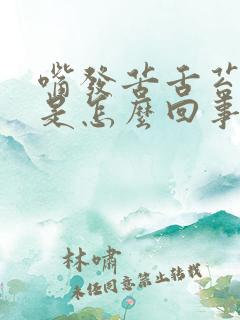 嘴發苦舌苔
是怎麼回事
林嘯
未任同意禁止转载